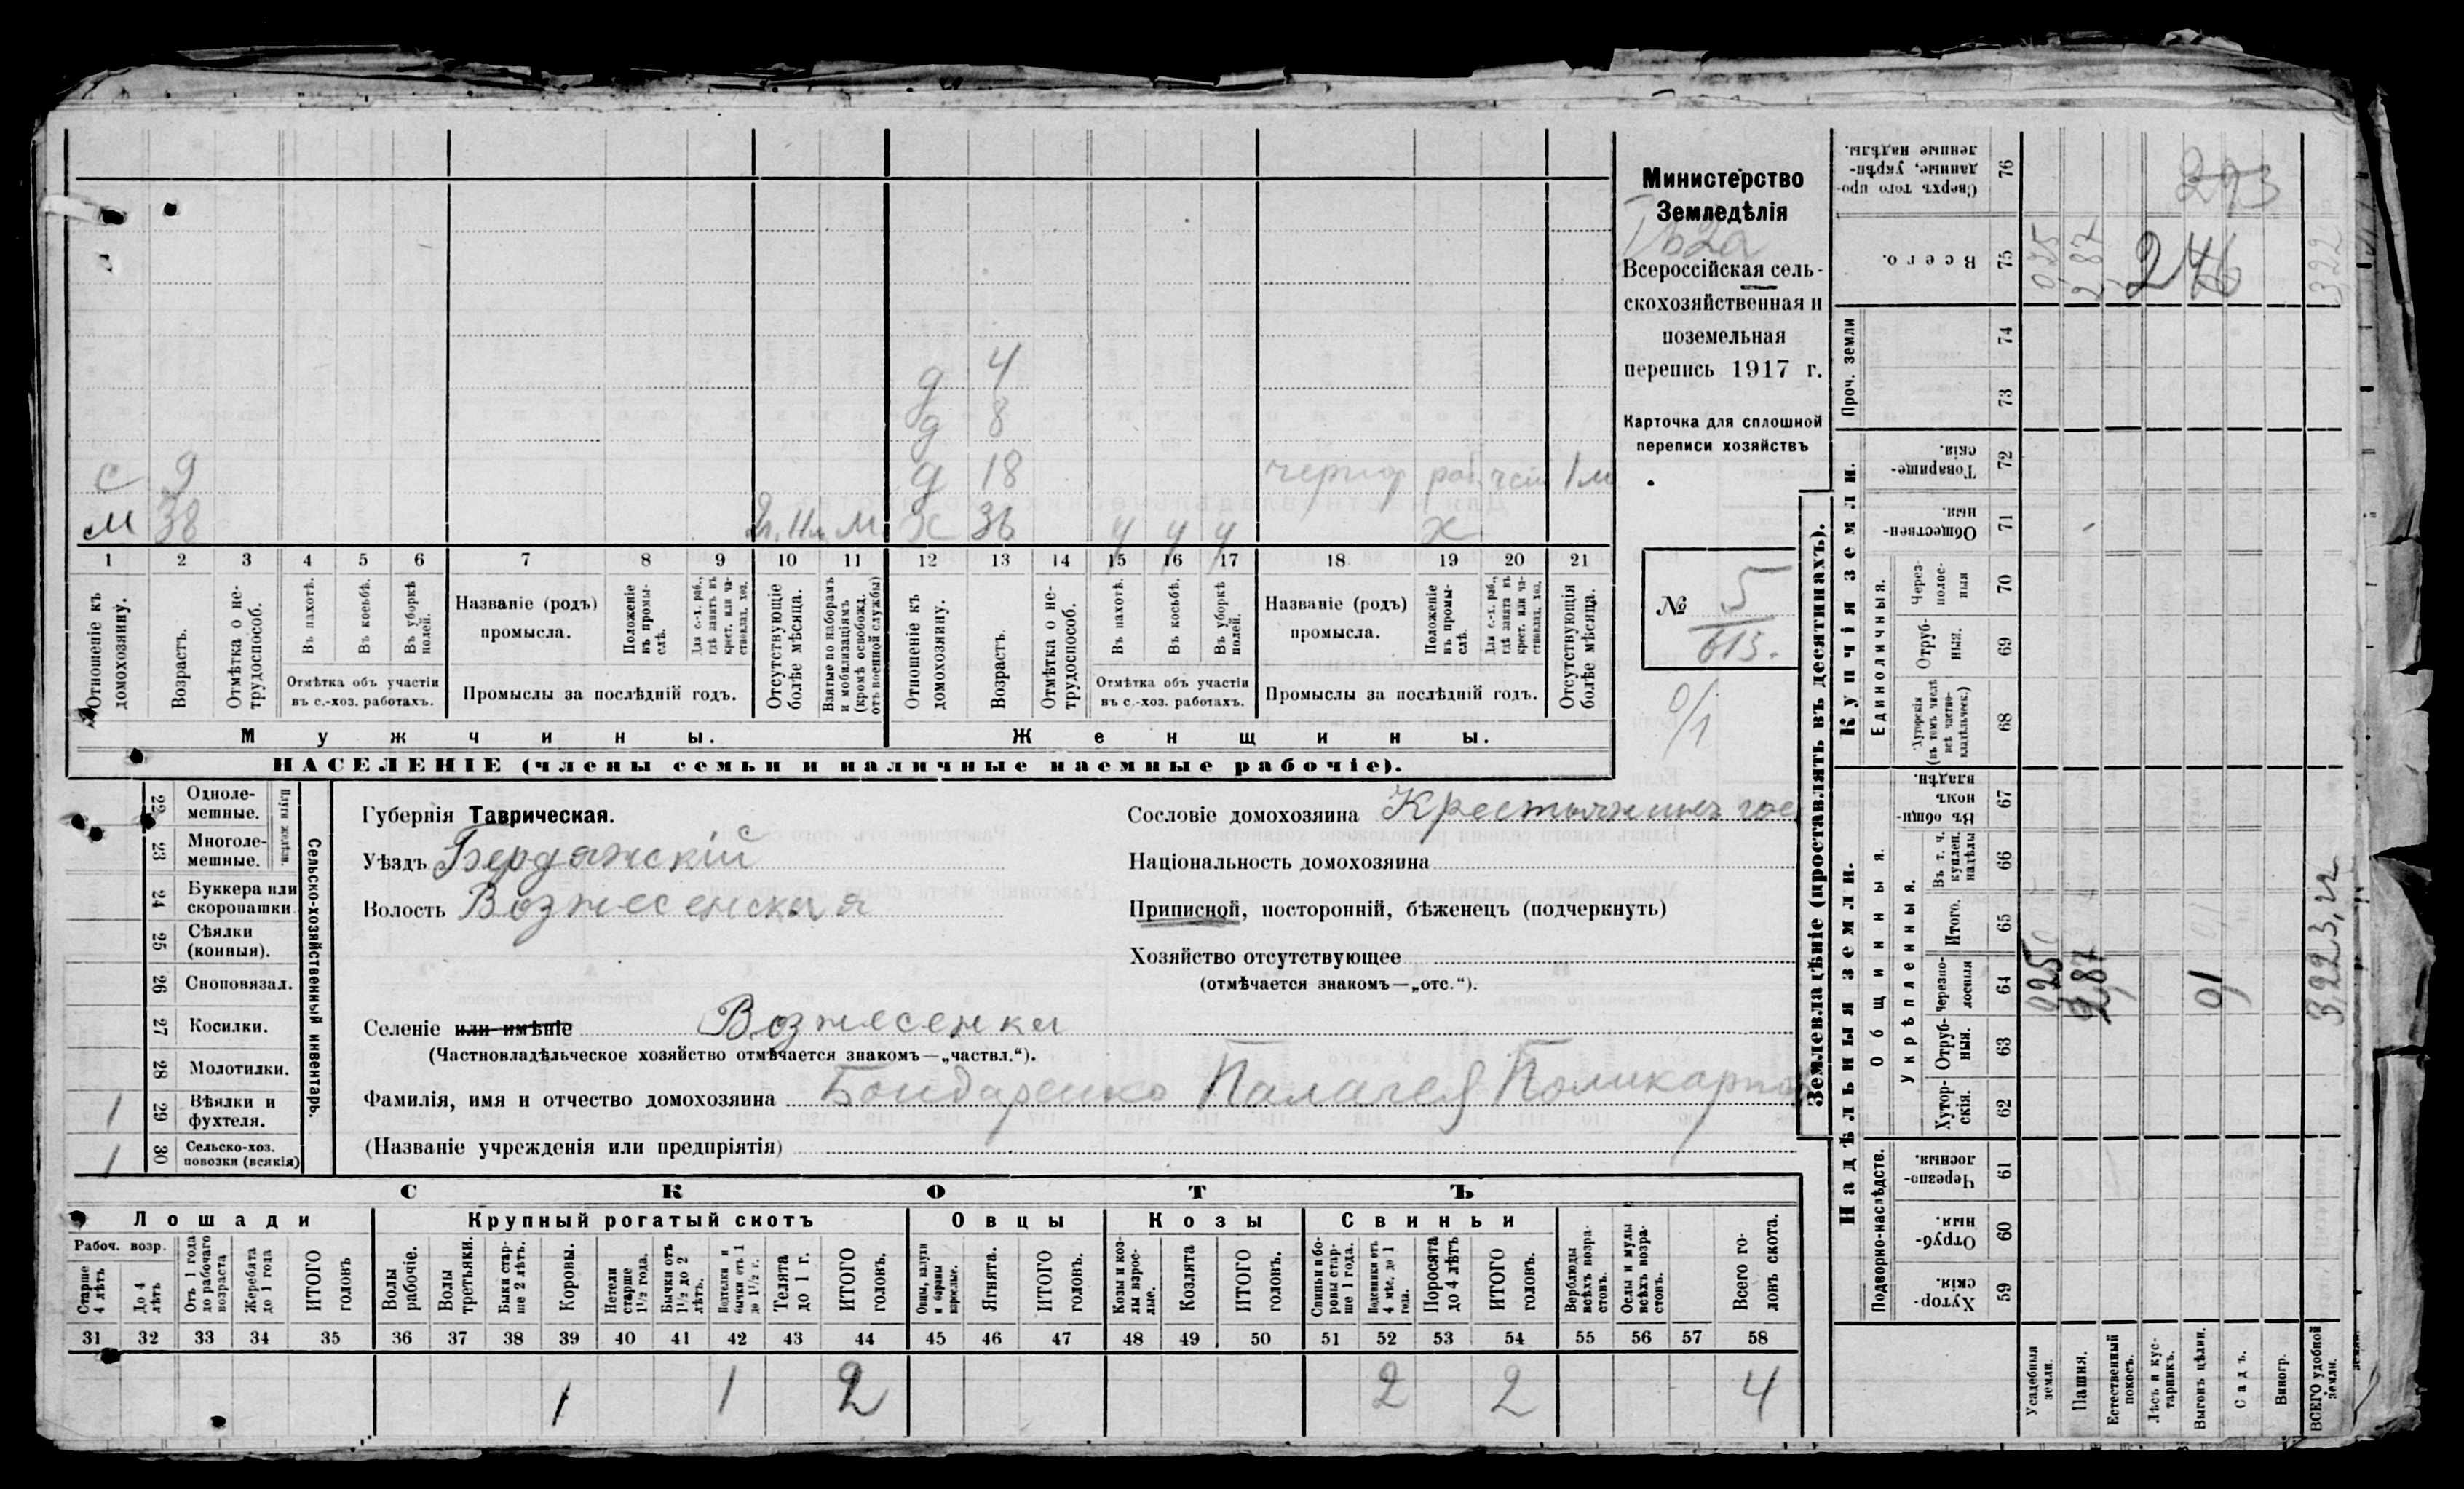 Министерство
Земледѣлія
Всероссійская сель-
скохозяйственная и
поземельная
перепись 1917 г.
Карточка для сплошной
переписи хозяйствъ
№ 5
613.
0/1
д 4
д 8
с 9 д 18 чернор раб 1 м
м 38 м х 36 ч ч ч х
1 2 3 4 5 6 7 8 9 10 11 12 13 14 15 16 17 18 19 20 21
Отношеніе къ домохозяину.
Возрастъ.
Отмѣтка о не-трудоспособ.
Въ пахотѣ.
Въ косьбѣ.
Въ уборкѣ полей.
Отмѣтка объ участіи
въ с.-хоз. работахъ.
Названіе (родъ)
промысла.
Положеніе въ промы-слѣ.
Для с.-х. раб., гдѣ занятъ въ крест. или ча-стновлад. хоз.
Промыслы за послѣдній годъ.
Отсутствующіе болѣе мѣсяца.
Взятые по наборамъ и мобилизаціямъ (кромѣ освобожд. отъ военной службы)
Отношеніе къ домохозяину.
Возрастъ.
Отмѣтка о не-трудоспособ.
Въ пахотѣ.
Въ косьбѣ.
Въ уборкѣ полей.
Отмѣтка объ участіи
въ с.-хоз. работахъ.
Названіе (родъ)
промысла.
Положеніе въ промы-слѣ.
Для с.-х. раб., гдѣ занята въ крест. или ча-стновлад. хоз.
Промыслы за послѣдній годъ.
Отсутствующія болѣе мѣсяца.
Мужчины. Женщины.
НАСЕЛЕНІЕ (члены семьи и наличные наемные рабочіе).
Сельско-хозяйственный инвентарь.
22 Одноле-мешные.
23 Многоле-мешные.
24 Буккера или скоропашки
25 Сѣялки (конныя).
26 Сноповязал.
27 Косилки.
28 Молотилки.
1 29 Вѣялки и фухтеля.
1 30 Сельско-хоз. повозки (всякія)
Губернія Таврическая.
Уѣздъ Бердянскій
Волость Вознесенская
Селеніе или имѣніе Вознесенка
(Частновладѣльческое хозяйство отмѣчается знакомъ—„частвл.“).
Фамилія, имя и отчество домохозяина Бондаренко Поликарпо
(Названіе учрежденія или предпріятія)
Сословіе домохозяина Крестьянинъ
Національность домохозяина
Приписной, посторонній, бѣженецъ (подчеркнуть)
Хозяйство отсутствующее
(отмѣчается знакомъ—„отс.“).
СКОТЪ
Лошади Крупный рогатый скотъ Овцы Козы Свиньи
Рабоч. возр.
Старше 4 лѣтъ
До 4 лѣтъ
Отъ 1 года до рабочаго возраста
Жеребята до 1 года
ИТОГО головъ
Волы рабочіе.
Волы третьяки.
Быки стар-ше 2 лѣтъ.
Коровы.
Нетели старше 1½ года.
Бычки отъ 1½ до 2 лѣтъ.
Подтелки и бычки отъ 1 до 1½ г.
Телята до 1 г.
ИТОГО головъ.
Овцы, валухи и бараны взрослые.
Ягнята.
ИТОГО головъ.
Козы и коз-лы взрос-лые.
Козлята
ИТОГО головъ.
Свиньи и бо-ровы стар-ше 1 года.
Подсвинки отъ 4 мѣс. до 1 года.
Поросята до 4 лѣтъ
ИТОГО головъ.
Верблюды всѣхъ возра-стовъ.
Ослы и мулы всѣхъ возра-стовъ.
Всего го-ловъ скота.
31 32 33 34 35 36 37 38 39 40 41 42 43 44 45 46 47 48 49 50 51 52 53 54 55 56 57 58
1 1 2 2 2 4
Землевладѣніе (проставлять въ десятинахъ).
Надѣльныя земли. Купчія земли. Проч. земли
Подворно-наслѣдств.
Общинныя.
Укрѣпленныя.
Единоличныя.
Хутор-скія. 59
Отруб-ныя. 60
Черезпо-лосныя. 61
Хутор-скія. 62
Отруб-ныя. 63
Черезпо-лосныя 64
Итого. 65
Въ т. ч. куплен. надѣлы 66
Въ общи-номъ владѣн. 67
Хуторскія (въ томъ числѣ всѣ частно-владѣльческ.) 68
Отруб-ныя. 69
Через-полос-ныя 70
Обществен-ныя. 71
Товарище-скія. 72
73
74
Всего. 75
Сверхъ того про-данные, укрѣп-ленные надѣлы. 76
Усадебныя земли.
Пашня.
Естественный покосъ.
Лѣсъ и кус-тарникъ.
Выгонъ цѣлин.
Садъ.
Виногр.
ВСЕГО удобной земли.
025
2,87
246
273
322
025
2,87
01